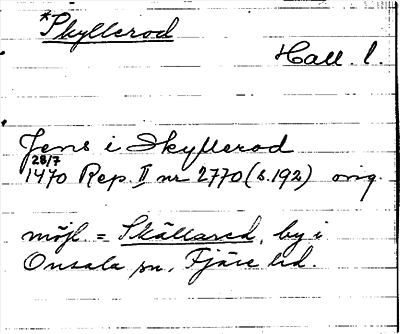 *Skyllerod
Hall. l.
Jens i Skyllerod
28/7
1470 Rep. II nr 2770 (s. 192) orig.
möjl. = Skällared, by i
Onsala sn, Fjäre hd.